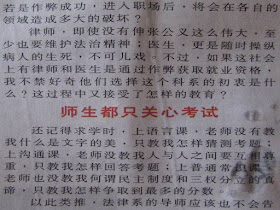 若是作弊成功，进入职场后，将会在各自的
领域造成多大的破坏？
律师，即使没有伸张公义这么伟大，至
少也要维护法治精神；医生，更是随时操纵
病人的生死，不可儿戏。不过，如果这社会
上有律师和医生是通过作弊获取就业资格，
我不禁好奇他们选择这个科系的初衷是什
么？这过程中又接受了怎样的教育？
师生都只关心考试
还记得求学时，上语言课，老师没有教
我什么是文字的美，只教我怎样猜测考题；
上沟通课，老师没教我人与人之间要互相尊
重，只教我怎样回答考题；上普通常识课，
老师也没教我何谓民主制度和三权分立的真
谛，只教我怎样争取到最多的分数
以此类推，法律系的导师应该也不会告